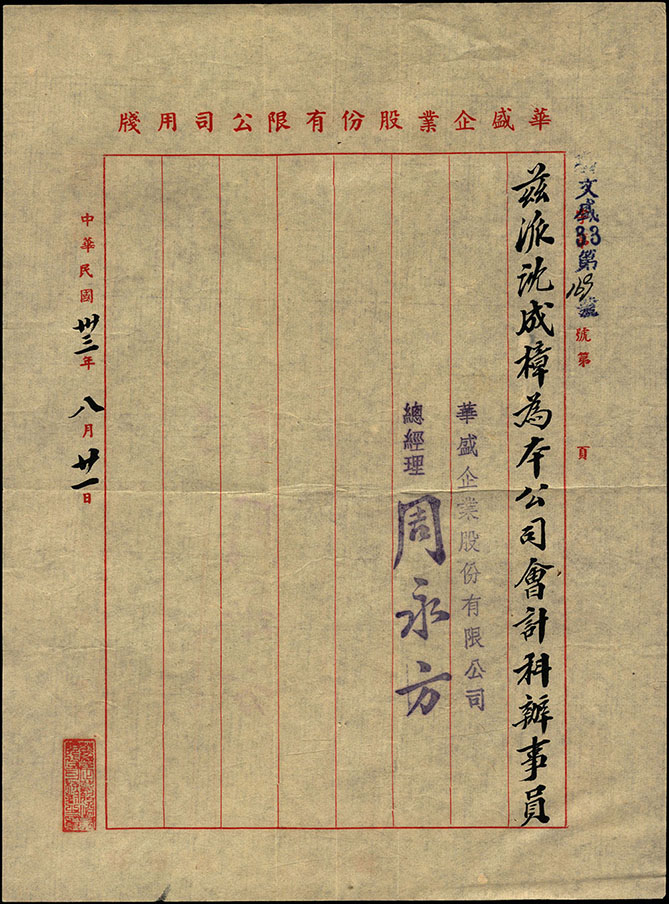 華盛企業股份有限公司用牋
文盛33第169號
號第 頁
茲派沈成樟為本公司會計科辦事員
華盛企業股份有限公司
總經理 周永方
中華民國卅三年八月廿一日